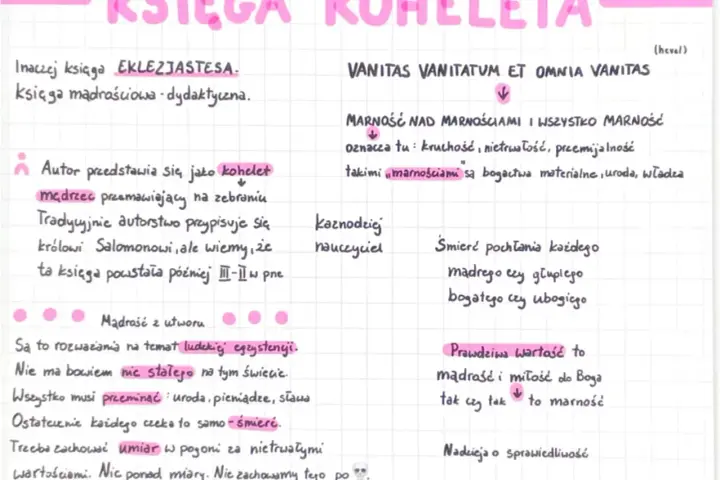 KSIĘGA KOHELETA
Inaczej księga EKLEZJASTESA.
księga mądrościowa - dydaktyczna.
Autor przedstawia się jako kohelet
mędrzec przemawiający na zebraniu
kaznodziej
nauczyciel
Tradycyjnie autorstwo przypisuje się
królowi Salomonowi, ale wiemy, że
ta księga powstała później III-II w pne
Mądrość z utworu
Są to rozważania na temat ludzkiej egzystencji.
Nie ma bowiem nic stałego na tym świecie.
Wszystko musi przeminąć : uroda, pieniądze, sława
Ostatecznie każdego czeka to samo - śmierć.
Trzeba zachować umiar w pogoni za nietrwałymi
wartościami. Nic ponad miarę. Nie zachowamy tego po 💀.
(hevel)
VANITAS VANITATUM ET OMNIA VANITAS
↓
MARNOŚĆ NAD MARNOŚCIAMI I WSZYSTKO MARNOŚĆ
↓
oznacza tu : kruchość, nietrwałość, przemijalność
takimi „marnościami" są bogactwa materialne, uroda, władza
Śmierć pochłania każdego
mądrego czy głupiego
bogatego czy ubogiego
Prawdziwa wartość to
mądrość i miłość do Boga
tak czy tak ↓ to marność
Nadzieja o sprawiedliwość